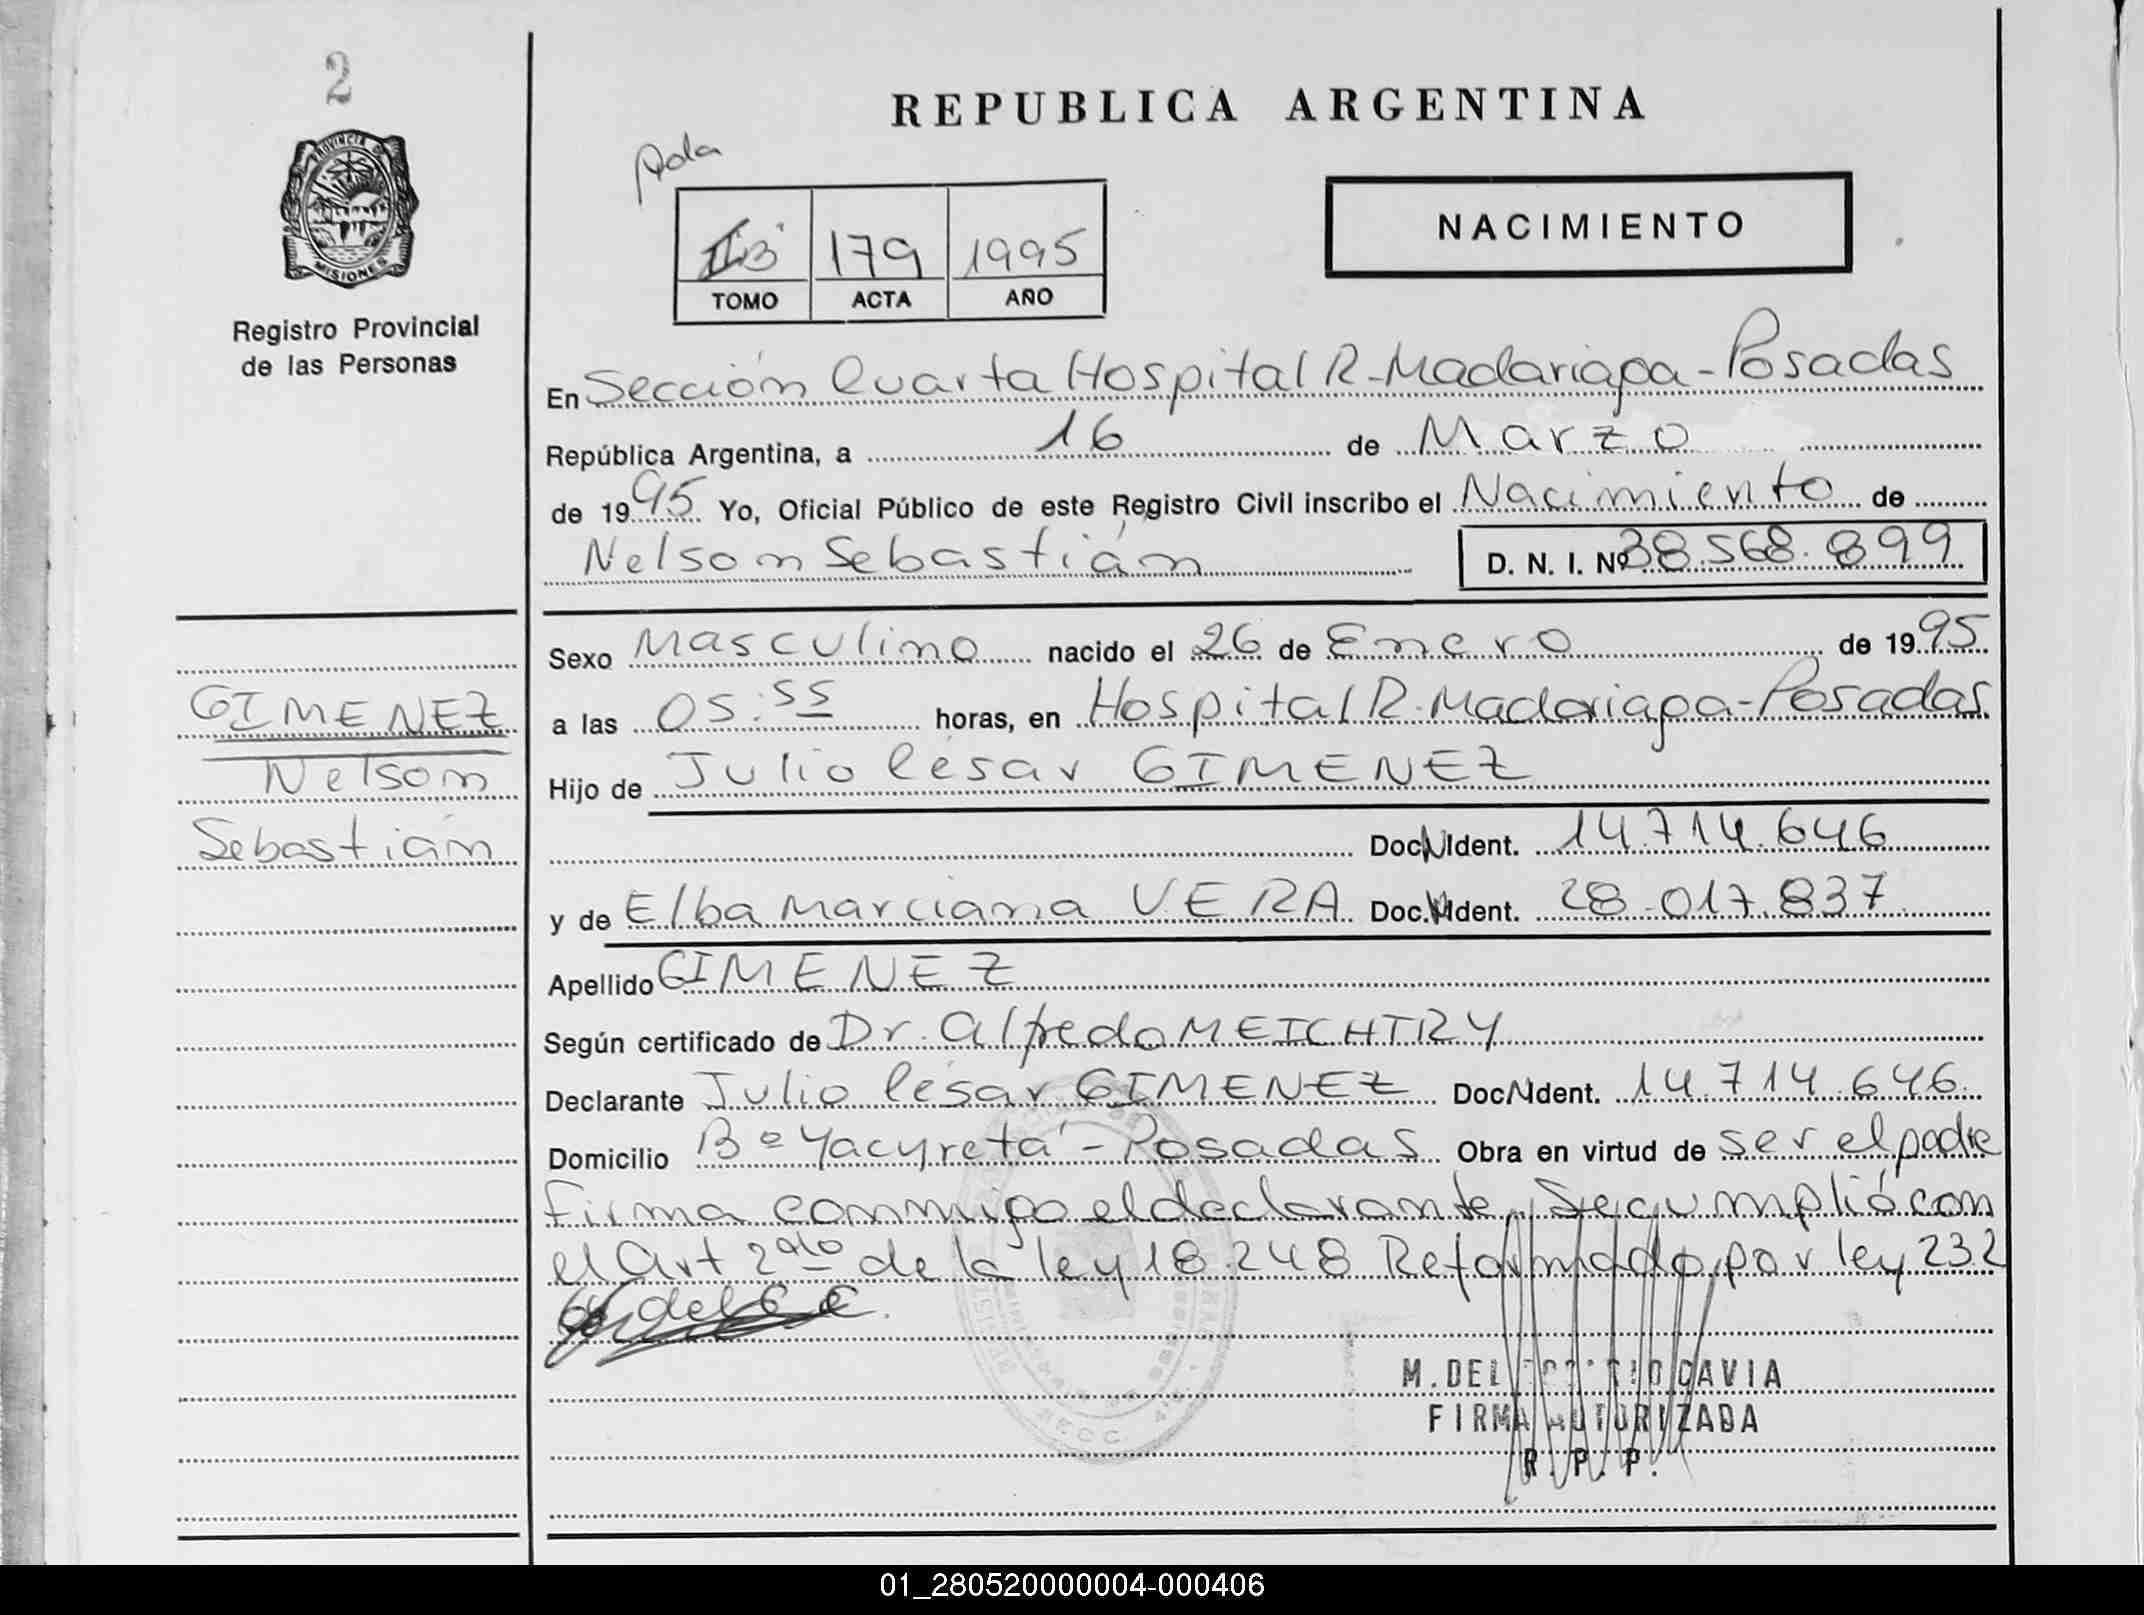 2
REPUBLICA ARGENTINA
Pda
PROVINCIA DE
MISIONES
NACIMIENTO
II 3 179 1995
TOMO ACTA AÑO
Registro Provincial
de las Personas
En Sección Cuarta Hospital R. Madariaga - Posadas
República Argentina, a 16 de Marzo
de 1995 Yo, Oficial Público de este Registro Civil inscribo el Nacimiento de
Nelson Sebastián D. N. I. Nº 38.568.899
Sexo Masculino nacido el 26 de Enero de 1995
GIMENEZ
Nelson
Sebastián
a las 05:55 horas, en Hospital R. Madariaga - Posadas
Hijo de Julio César GIMENEZ
Doc.N.Ident. 14.714.646
y de Elba Marciana VERA Doc.N.Ident. 28.017.837
Apellido GIMENEZ
Según certificado de Dr. Alfredo MEICHTRY
Declarante Julio César GIMENEZ Doc.N.Ident. 14.714.646
Domicilio Bº Yacyretá - Posadas Obra en virtud de ser el padre
firma conmigo el declarante, Se cumplió con
el Art 2do de la ley 18.248 Reformado por ley 232
64 del C C.
M. DEL CAVIA
FIRMA AUTORIZADA
R. P. P.
01_280520000004-000406